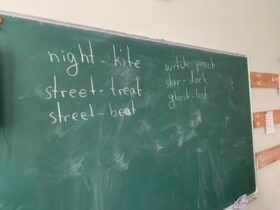 night - kite
street - treat
street - beat
witch - peach
star - dark
ghost -